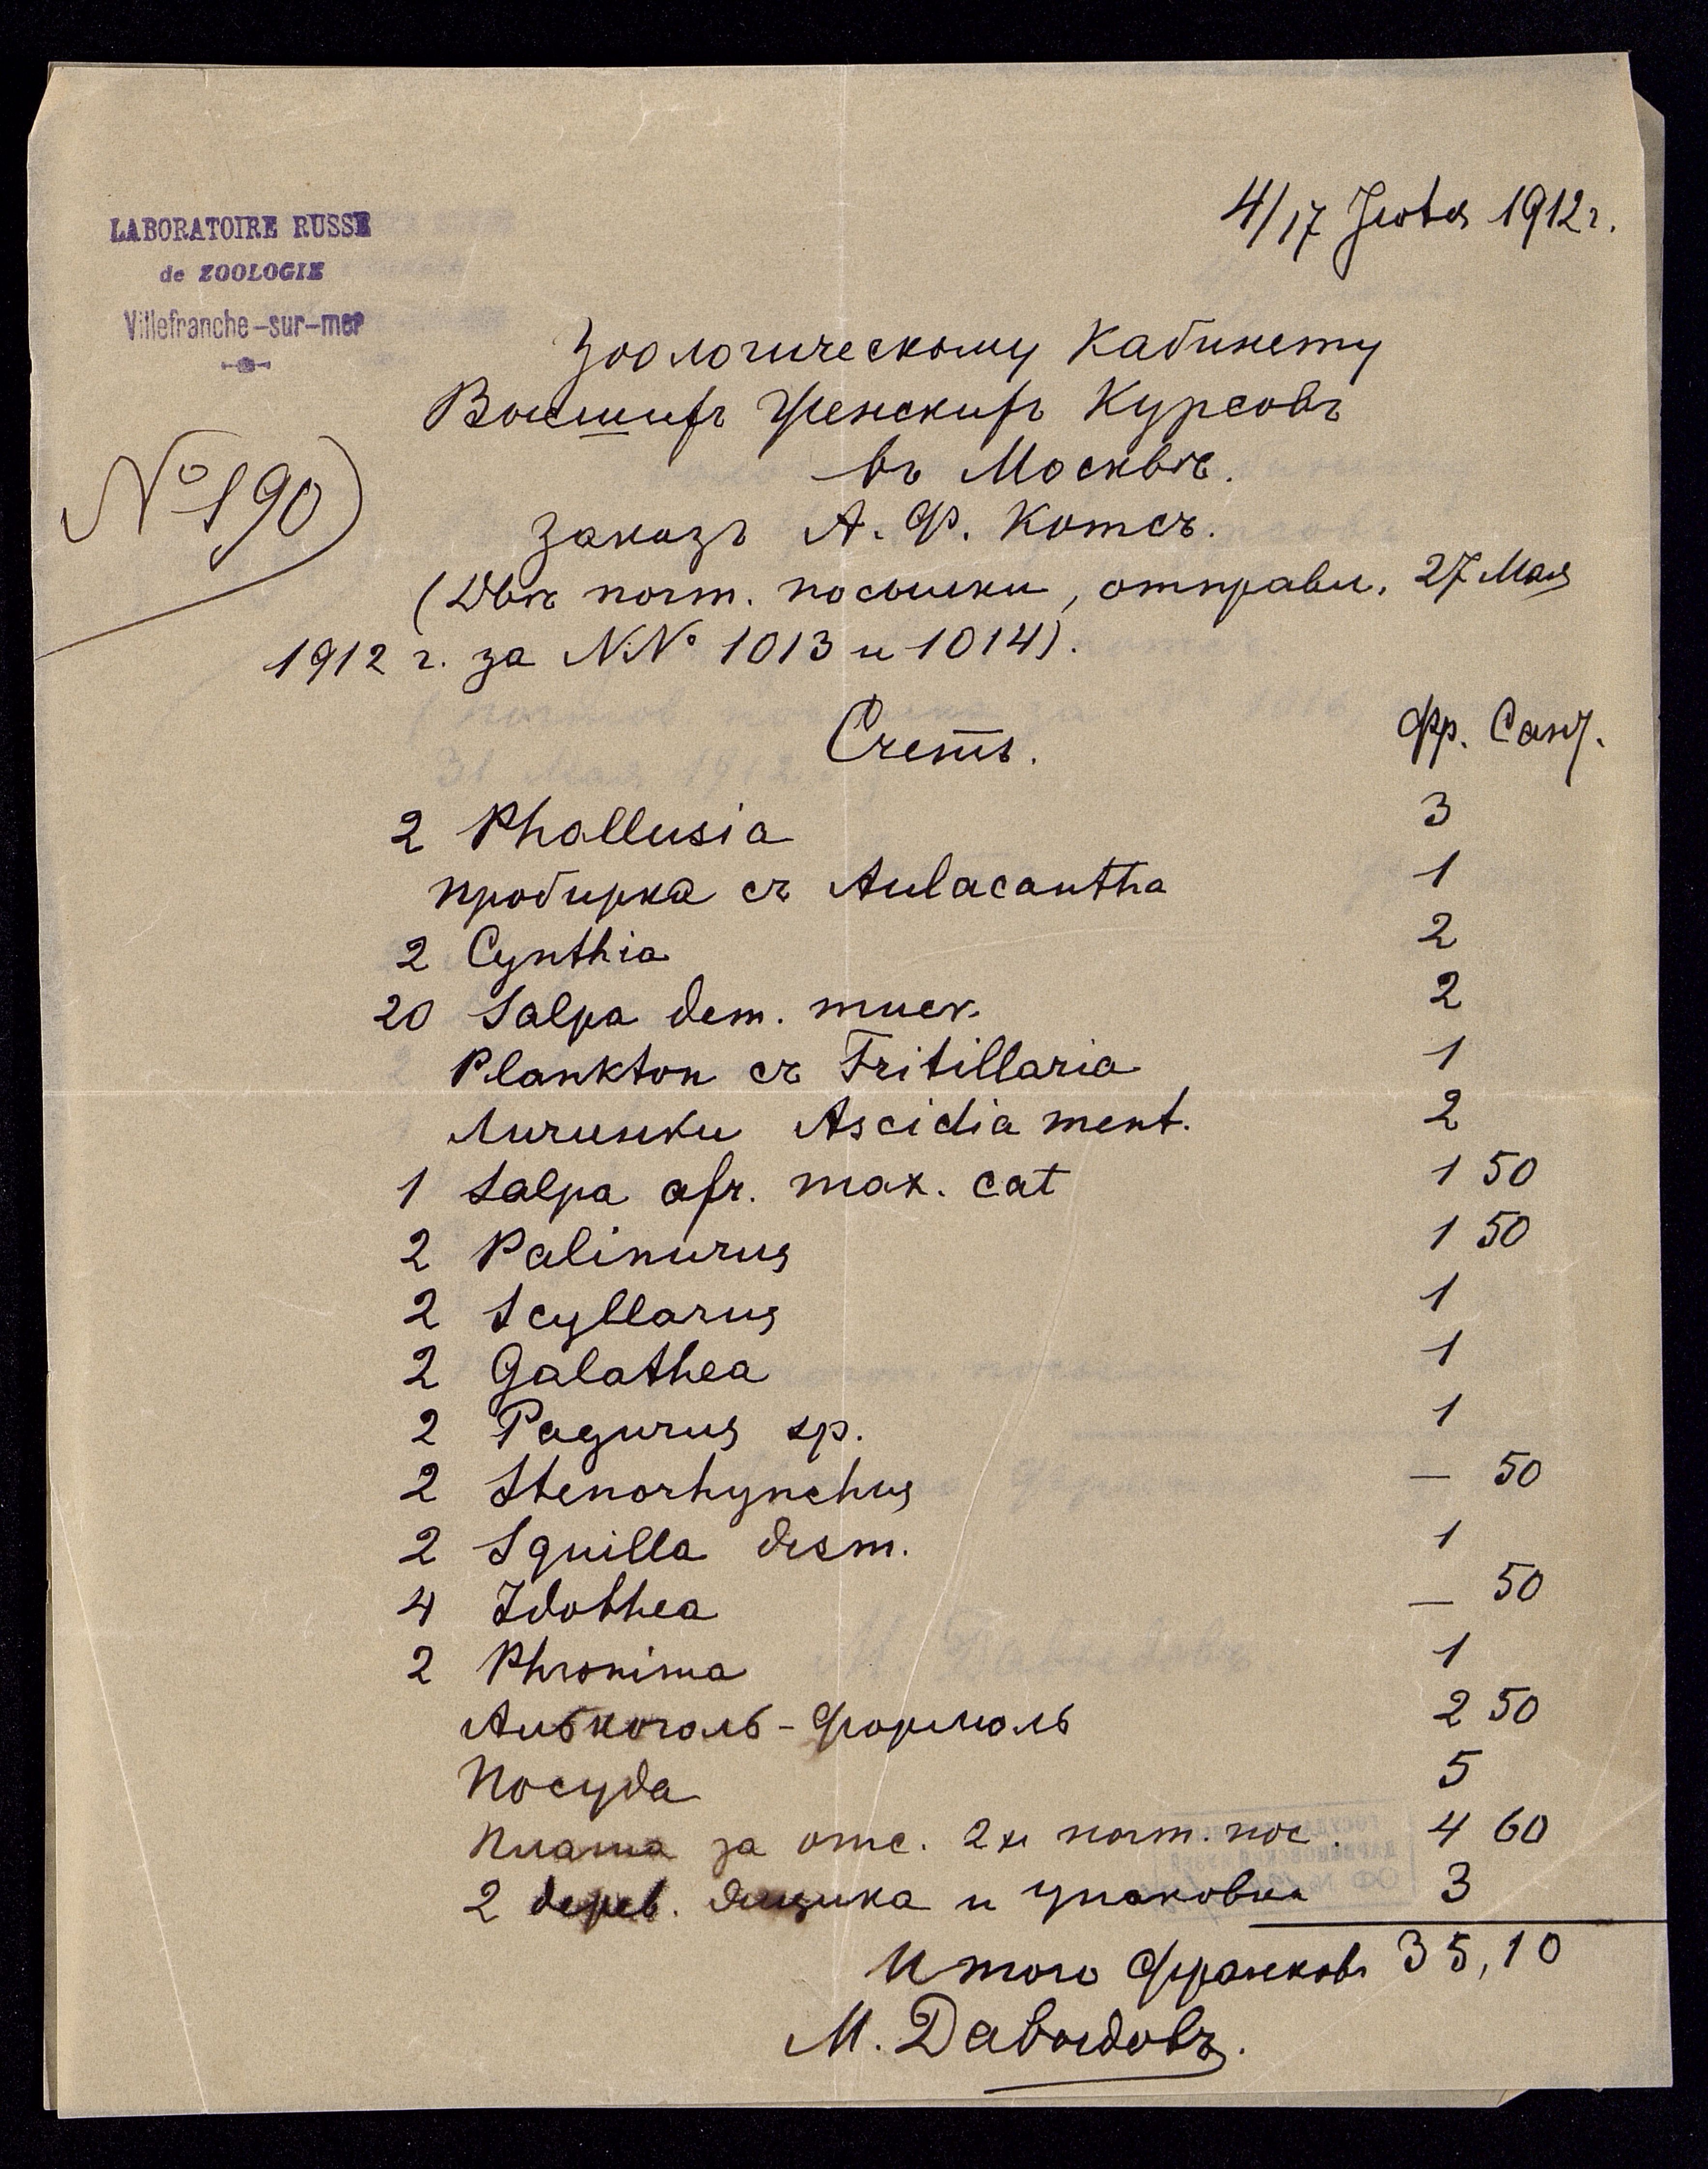 LABORATOIRE RUSSE
de ZOOLOGIE
Villefranche-sur-mer
4/17 Іюня 1912 г.
№ 190)
Зоологическому Кабинету
Высшихъ Женскихъ Курсовъ
въ Москвѣ.
Заказъ А. Ф. Котсъ.
(Двѣ почт. посылки, отправл. 27 Мая
1912 г. за №№ 1013 и 1014).
Счетъ. Фр. Сант.
2 Phallusia 3
пробирка съ Aulacantha 1
2 Cynthia 2
20 Salpa dem. mucr. 2
Plankton съ Fritillaria 1
личинки Ascidia ment. 2
1 Salpa afr. max. cat 1 50
2 Palinurus 1 50
2 Scyllarus 1
2 Galathea 1
2 Pagurus sp. 1
2 Stenorhynchus — 50
2 Squilla desm. 1
4 Idothea — 50
2 Phronima 1
Алькоголь-формоль 2 50
Посуда 5
Плата за отс. 2х почт. пос. 4 60
2 дерев. ящика и упаковка 3
Итого франковъ 35,10
М. Давыдовъ.